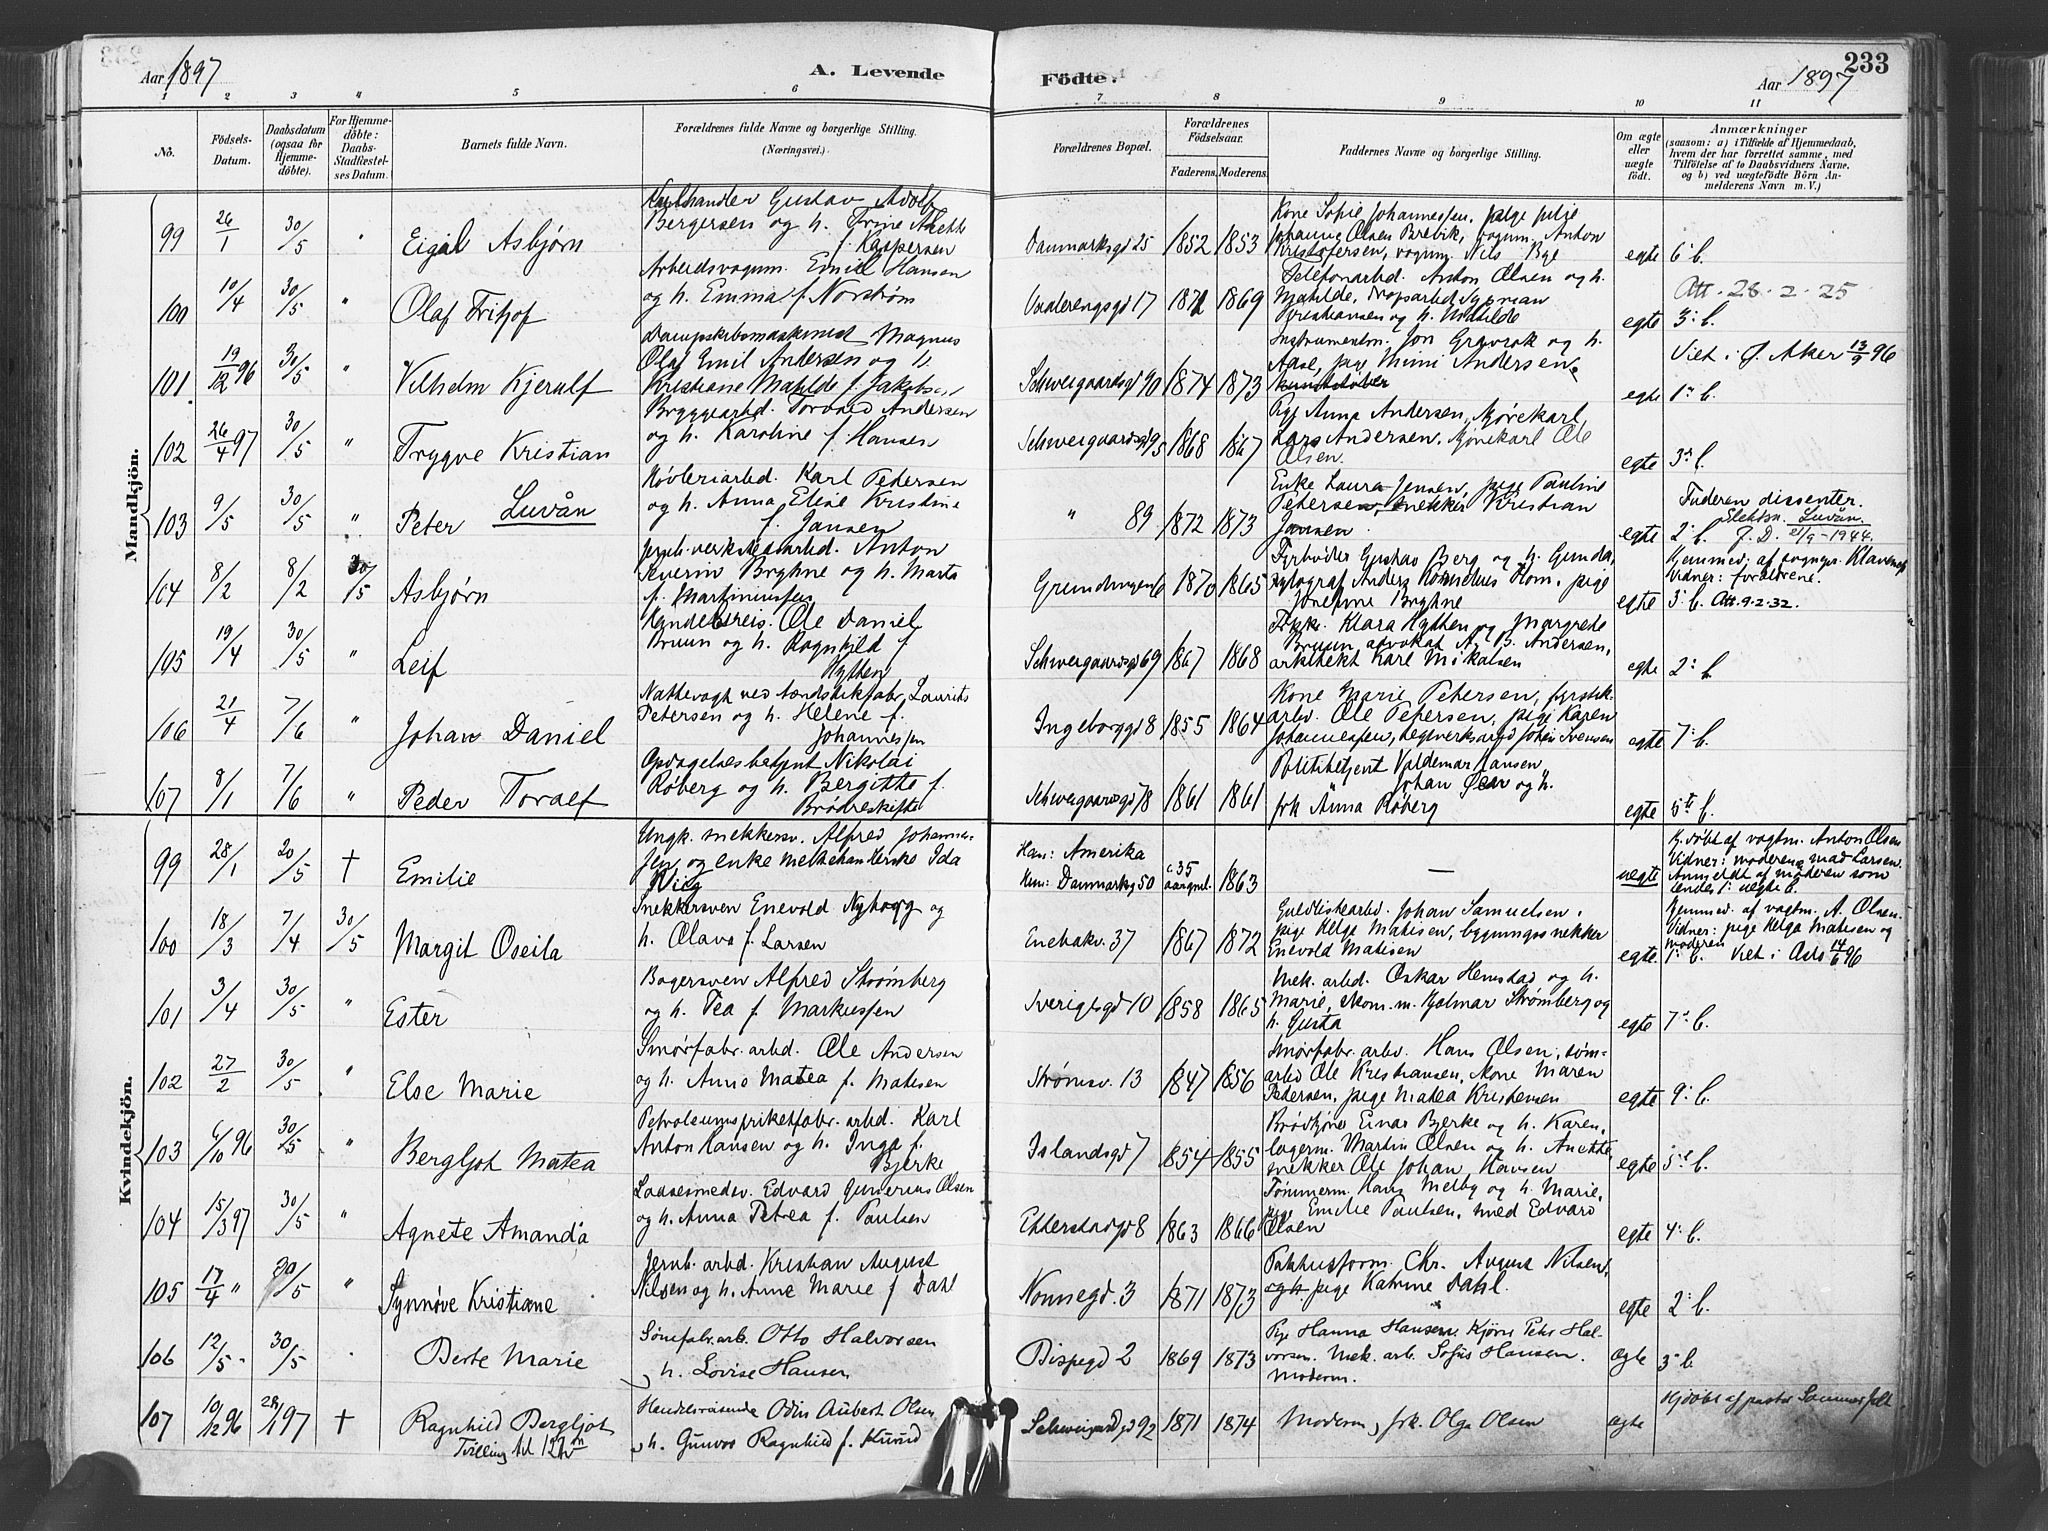 Aar 1897
A. Levende Fødte.
Aar 1897
233
1 2 3 4 5 6 7 8 9 10 11
No.
Fødsels-Datum.
Daabsdatum (ogsaa for Hjemme-døbte).
For Hjemme-døbte: Daabs-Stadfæstel-ses Datum.
Barnets fulde Navn.
Forældrenes fulde Navne og borgerlige Stilling.
(Næringsvei.)
Forældrenes Bopæl.
Forældrenes Fødselsaar.
Faderens. Moderens.
Faddernes Navne og borgerlige Stilling.
Om ægte eller uægte født.
Anmærkninger
(saasom: a) i Tilfælde af Hjemmedaab, hvem der har forrettet samme, med Tilføielse af to Daabsvidners Navne, og b) ved uægtefødte Børn An-melderens Navn m. V.)
Mandkjøn.
99 26/1 30/5 " Eigil Asbjørn
Gustav Adolf
Bergersen og h. Trine Anette
f. Kaspersen
Danmarksgd 25 1852 1853
Kone Sofie Johannessen, pige
Johanne Olsen Brevik, vognm. Anton
Kristofersen, vognm. Nils
egte 6. b.
100 10/4 30/5 " Olaf Fritjof
Arbeidsvognm. Emil Hansen
og h. Emma f. Norstrøm
Vaalerengsgd 17 1872 1869
Telefonarbd. Anton Olsen og h.
Matilde,
Kristiansen og h. Matilde
egte 3: b.
Att. 28-2-25
101 19/12 96 30/5 " Vilhelm Kjerulf
Dampskibsmaskinist Magnus
Olaf Emil Andersen og h.
Kristiane Matilde f. Jakobsen
Schweigaardsgd 90 1874 1873
Instrumentm. Jon Gravrok og h.
Aase, pige Mimi Andersen.
egte 1: b.
Viet i Ø. Aker 13/9 96
102 26/4 97 30/5 " Trygve Kristian
Bryggearbd. Torvald Andersen
og h. Karoline f. Hansen
Schweigaardsgd 95 1868 1867
Pige Anna Andersen, kjørekarl
Lars Andersen, kjørekarl Ole
Olsen.
egte 3: b.
103 9/5 30/5 " Peter Luvån
Høvleriarbd. Karl Petersen
og h. Anna Elise Kristine
f. Jansen
" 89 1872 1873
Enke Laura Jensen, pige Pauline
Petersen, snekker Kristian
Jansen
egte 2: b.
Faderen dissenter.
Slektsn. Luvån
J. D. 21/9-1944.
104 8/2 8/2 30/5 Asbjørn
Jernb. verkstedarbd. Anton
Severin Bryhne og h. Marta
f. Martinussen
Grundingen 6 1870 1865
Fyrbøder Gustav Berg og h. Gunda,
xylograf Anders Kornelius Hom, pige
Josefine Bryhne
egte 3: b. Att. 9-2-32.
Hjemmed. af sognepr. Klavenes
Vidner: forældrene.
105 19/4 30/5 " Leif
Kyndebreis. Ole Daniel
Bruun og h. Ragnhild f.
Hytten
Schweigaardsgd 69 1867 1868
Frkn. Klara Hytten og Margrete
Bruun, advokat A. B. Andersen,
arkitekt Karl Mikalsen
egte 2: b.
106 21/4 7/6 " Johan Daniel
Nattevagt ved tændstikfabr. Laurits
Petersen og h. Helene f.
Johannessen
Ingeborggd 8 1855 1864
Kone Marie Petersen, fyrstik-
arb. Ole Petersen, pige Karen
Johannessen, teglverksarbd Johan Svensen
egte 7: b.
107 8/1 7/6 " Peder Toralf
Opdagelsesbetjent Nikolai
Røberg og h. Bergitte f.
Brødreskifte
Schweigaardsgd 78 1861 1861
Politibetjent Valdemar Hansen,
" Johan Øen og h.
frk Anna Røberg
egte 5te b.
Kvindekjøn.
99 28/1 20/5 † Emilie
Ungk. snekkersv. Alfred Johannes-
sen og enke melkehandlerske Ida
Wiig
Han: Amerika
Hun: Danmarksg 50 c. 35 aar gml. 1863
—
uegte
Hj.døbt af vagtm. Anton Olsen
Vidner: moderen, mad Larsen.
Anmeldt af moderen som
hendes 1: uegte b.
100 18/3 7/4 30/5 Margit Oseila
Snekkersven Enevold Nyborg og
h. Olava f. Larsen
Enebakv. 37 1867 1872
Guldlistearbd. Johan Samuelsen,
pige Helga Matisen, bygningssnekker
Enevold Matisen
egte 1: b. Viet i Oslo 14/6 96
Hjemmed. af vagtm. A. Olsen.
Vidner: pige Helga Matisen og
moderen
101 3/4 30/5 " Ester
Bagersven Alfred Strømberg
og h. Tea f. Markussen
Sverigesgd 10 1858 1865
Mek. arbd. Oskar Hemstad og h.
Marie, skom. m. Hjalmar Strømberg og
h. Gusta
egte 7: b.
102 27/2 30/5 " Else Marie
Smørfabr. arbd. Ole Andersen
og h. Anne Matea f. Matisen
Strømsv. 13 1847 1856
Smørfabr. arbd. Hans Olsen, søm-
arbd Ole Kristiansen, kone Maren
Pedersen, pige Matea Kristensen
egte 9: b.
103 6/10 96 30/5 " Bergljot Matea
Petroleumsprikefabr. arbd. Karl
Anton Hansen og h. Inga f.
Bjerke
Islandsgd 7 1854 1855
Brødkjører Einar Bjerke og h. Karen,
lagerm. Martin Olsen og h. Anette,
snekker Ole Johan Hansen
egte 5te b.
104 15/3 97 30/5 " Agnete Amanda
Laasesmedsv. Edvard Gunerius Olsen
og h. Anna Petrea f. Paulsen
Etterstadgd 8 1863 1866
Tømmerm. Hans Melby og h. Marie,
pige Emilie Paulsen, smed Edvard
Olsen
egte 4: b.
105 17/4 " 30/5 " Synnøve Kristiane
Jernb. arbd. Kristian August
Nilsen og h. Anne Marie f. Dahl
Nonnegd. 3 1871 1873
Pakhusform. Chr. August Nilsen,
og h. pige Katrine Dahl.
egte 2: b.
106 12/5 30/5 Berte Marie
Sømfabr. arb. Otto Halvorsen
h. Lovise Hansen
Bispegd 2 1869 1873
Pige Hanna Hansen. Kjører Peter Hal-
vorsen. Mek. arb. Sofus Hansen.
Moderen.
Ægte 3: b
107 10/12 96 28/1 97 † Ragnhild Bergljot
Tvilling til
Handelsreisende Odin Aubert Olsen
h. Gunvor Ragnhild f.
Schweigaardsgd 92 1871 1874
Moderen, frk. Olga Olsen
ægte
Hjdøbt af pastor Sommerfelt